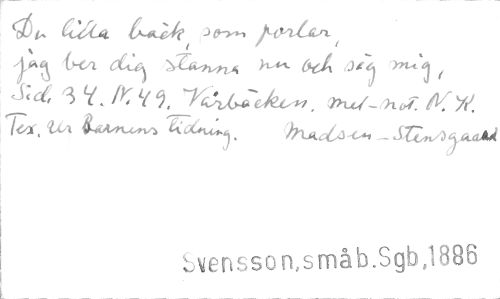 Du lilla bäck, som porlar,
jag ber dig stanna nu och säg mig,
Sid. 34. N. 49. Vårbäcken. mel-not. N. K.
Tex. ur Barnens tidning. Madsen-Stensgaard
Svensson, småb. Sgb, 1886